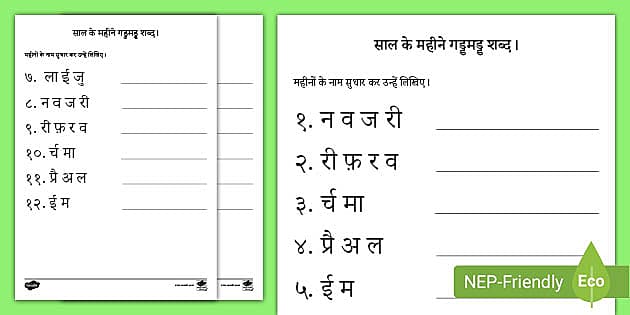 साल के महीने गड्डमड्ड शब्द।
महीनों के नाम सुधार कर उन्हें लिखिए।
७. ला ई जु
८. न व ज री
९. री फ़ र व
१०. र्च मा
११. प्रै अ ल
१२. ई म
साल के महीने गड्डमड्ड शब्द।
महीनों के नाम सुधार कर उन्हें लिखिए।
१. न व ज री
२. री फ़ र व
३. र्च मा
४. प्रै अ ल
५. ई म
NEP-Friendly
Eco